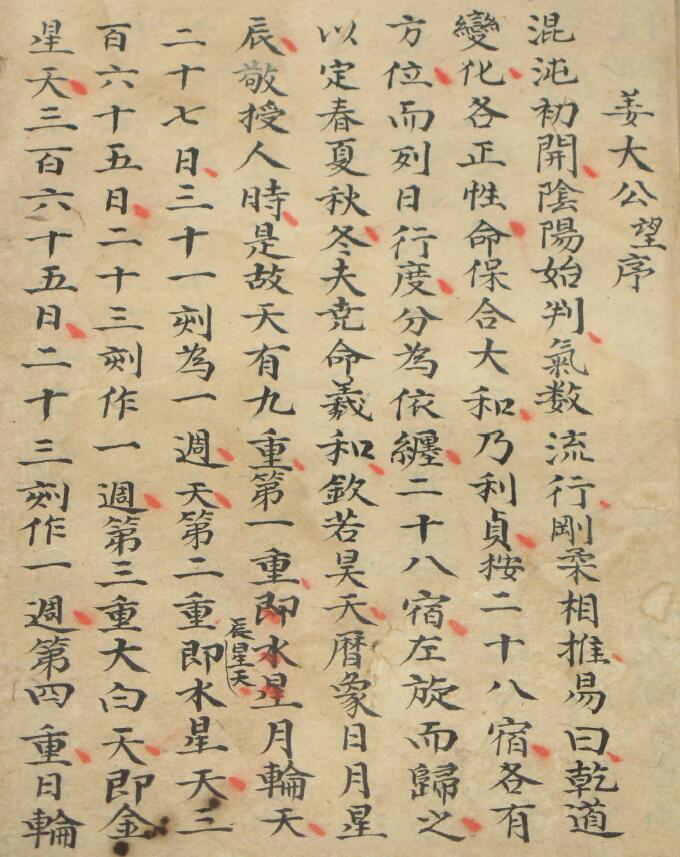 姜大公望序
混沌初開陰陽始判氣数流行剛柔相推易曰乾道
變化各正性命保合大和乃利貞按二十八宿各有
方位而列日行度分為依纏二十八宿左旋而歸之
以定春夏秋冬夫尭命羲和欽若昊天曆象日月星
辰敬授人時是故天有九重第一重即水星月輪天
辰星天
二十七日三十一刻為一週天第二重即水星天三
百六十五日二十三刻作一週第三重大白天即金
星天三百六十五日二十三刻作一週第四重日輪